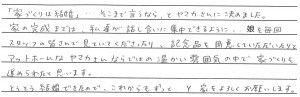 「家づくりは結婚」…そこまで言うなら、とヤマカさんに決めました。
家の完成までは、私達が話し合いに集中できるように、娘を毎回
スタッフの皆さんで見ていてくださったり、記念品を用意していただいたりと
アットホームなヤマカさんならではの温かい雰囲気の中で家づくりを
進められたと思います。
とうとう結婚できたので、これからもずっと Y家をよろしくお願いします。